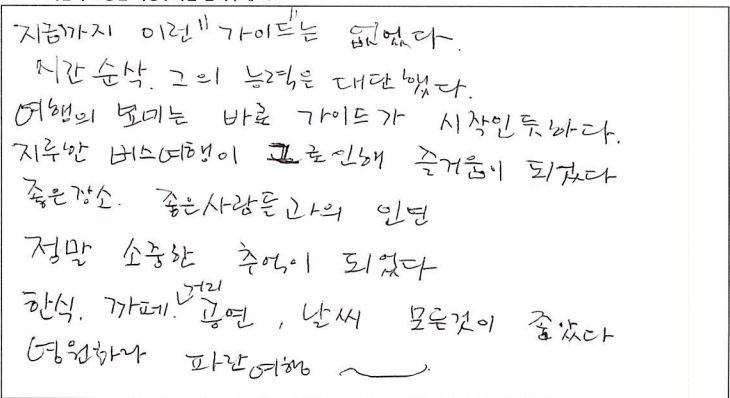 지금까지 이런 "가이드"는 없었다.
시간 순삭. 그의 능력은 대단했다.
여행의 묘미는 바로 가이드가 시작인듯하다.
지루한 버스여행이 그로인해 즐거움이 되었다
좋은장소. 좋은사람들과의 인연
정말 소중한 추억이 되었다
한식. 까페. 거리공연, 날씨 모든것이 좋았다
영원하라 파란여행 ~